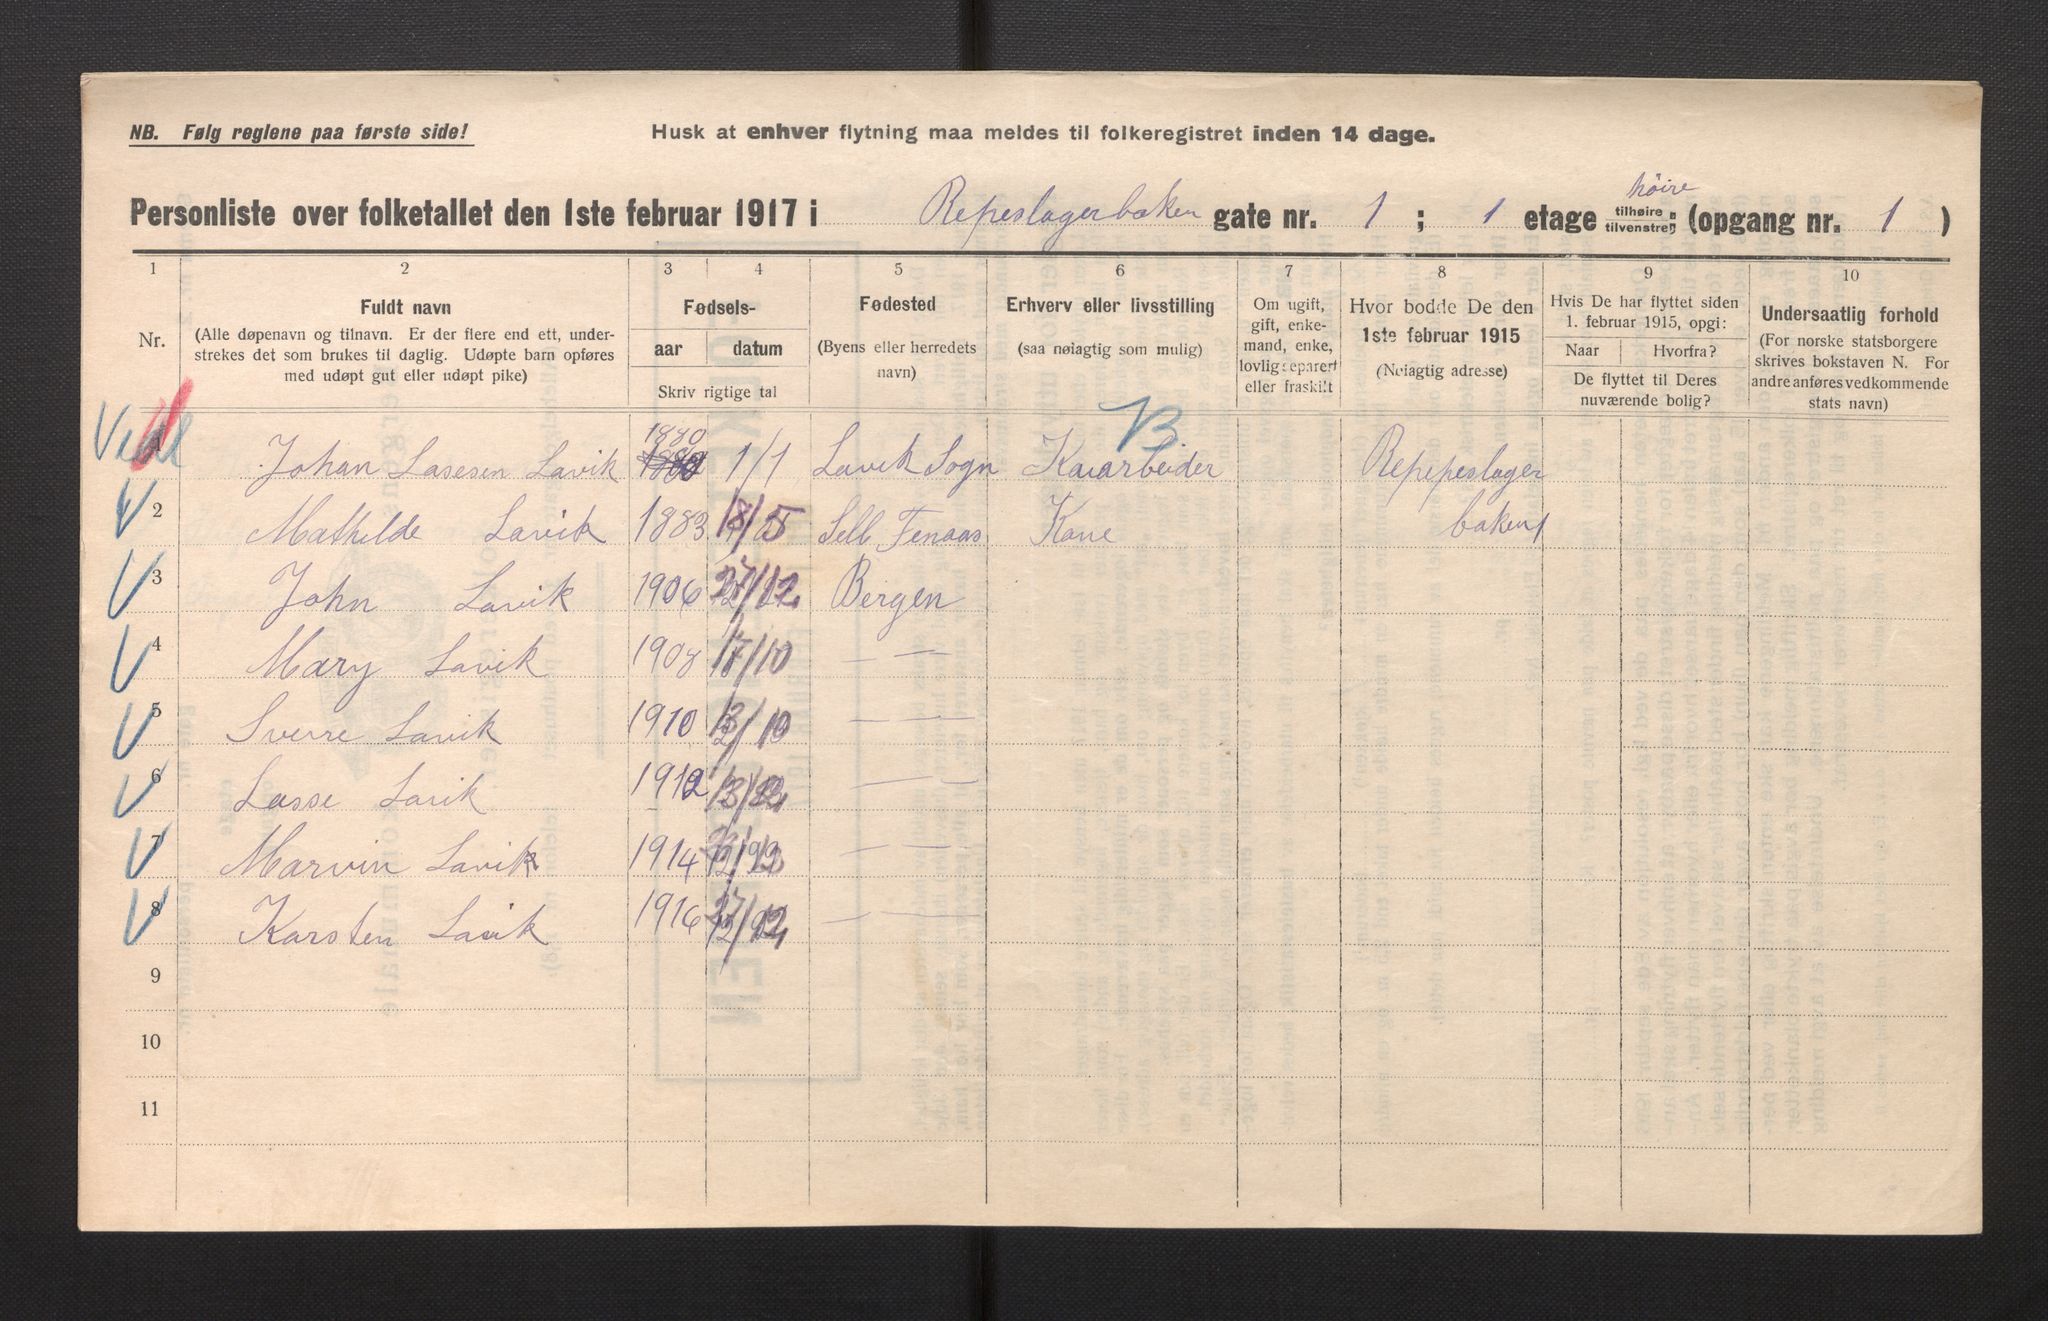 NB. Følg reglene paa første side! Husk at enhver flytning maa meldes til folkeregistret inden 14 dage.
høire
Personliste over folketallet den 1ste februar 1917 i Repeslagerbaken gate nr. 1 ; 1 etage tilhøire tilvenstre (opgang nr. 1 )
1 2 3 4 5 6 7 8 9 10
Nr.
Fuldt navn
(Alle døpenavn og tilnavn. Er der flere end ett, under-
strekes det som brukes til daglig. Udøpte barn opføres
med udøpt gut eller udøpt pike)
Fødsels-
aar datum
Skriv rigtige tal
Fødested
(Byens eller herredets
navn)
Erhverv eller livsstilling
(saa nøiagtig som mulig)
Om ugift,
gift, enke-
mand, enke,
lovlig separert
eller fraskilt
Hvor bodde De den
1ste februar 1915
(Nøiagtig adresse)
Hvis De har flyttet siden
1. februar 1915, opgi:
Naar Hvorfra?
De flyttet til Deres
nuværende bolig?
Undersaatlig forhold
(For norske statsborgere
skrives bokstaven N. For
andre anføres vedkommende
stats navn)
B.
1880
1 Johan Lasesen Lavik 1/1 Lavik Sogn Kaiarbeider Repepeslager
2 Mathilde Lavik 1883 Sell Fenaas Kone baken 1
3 John Lavik 1906 27/12 Bergen
4 Mary Lavik 1908 17/10 — —
5 Sverre Lavik 1910 — —
6 Lasse Lavik 1912 — —
7 Marvin Lavik 1914 — —
8 Karsten Lavik 1916 — —
9
10
11